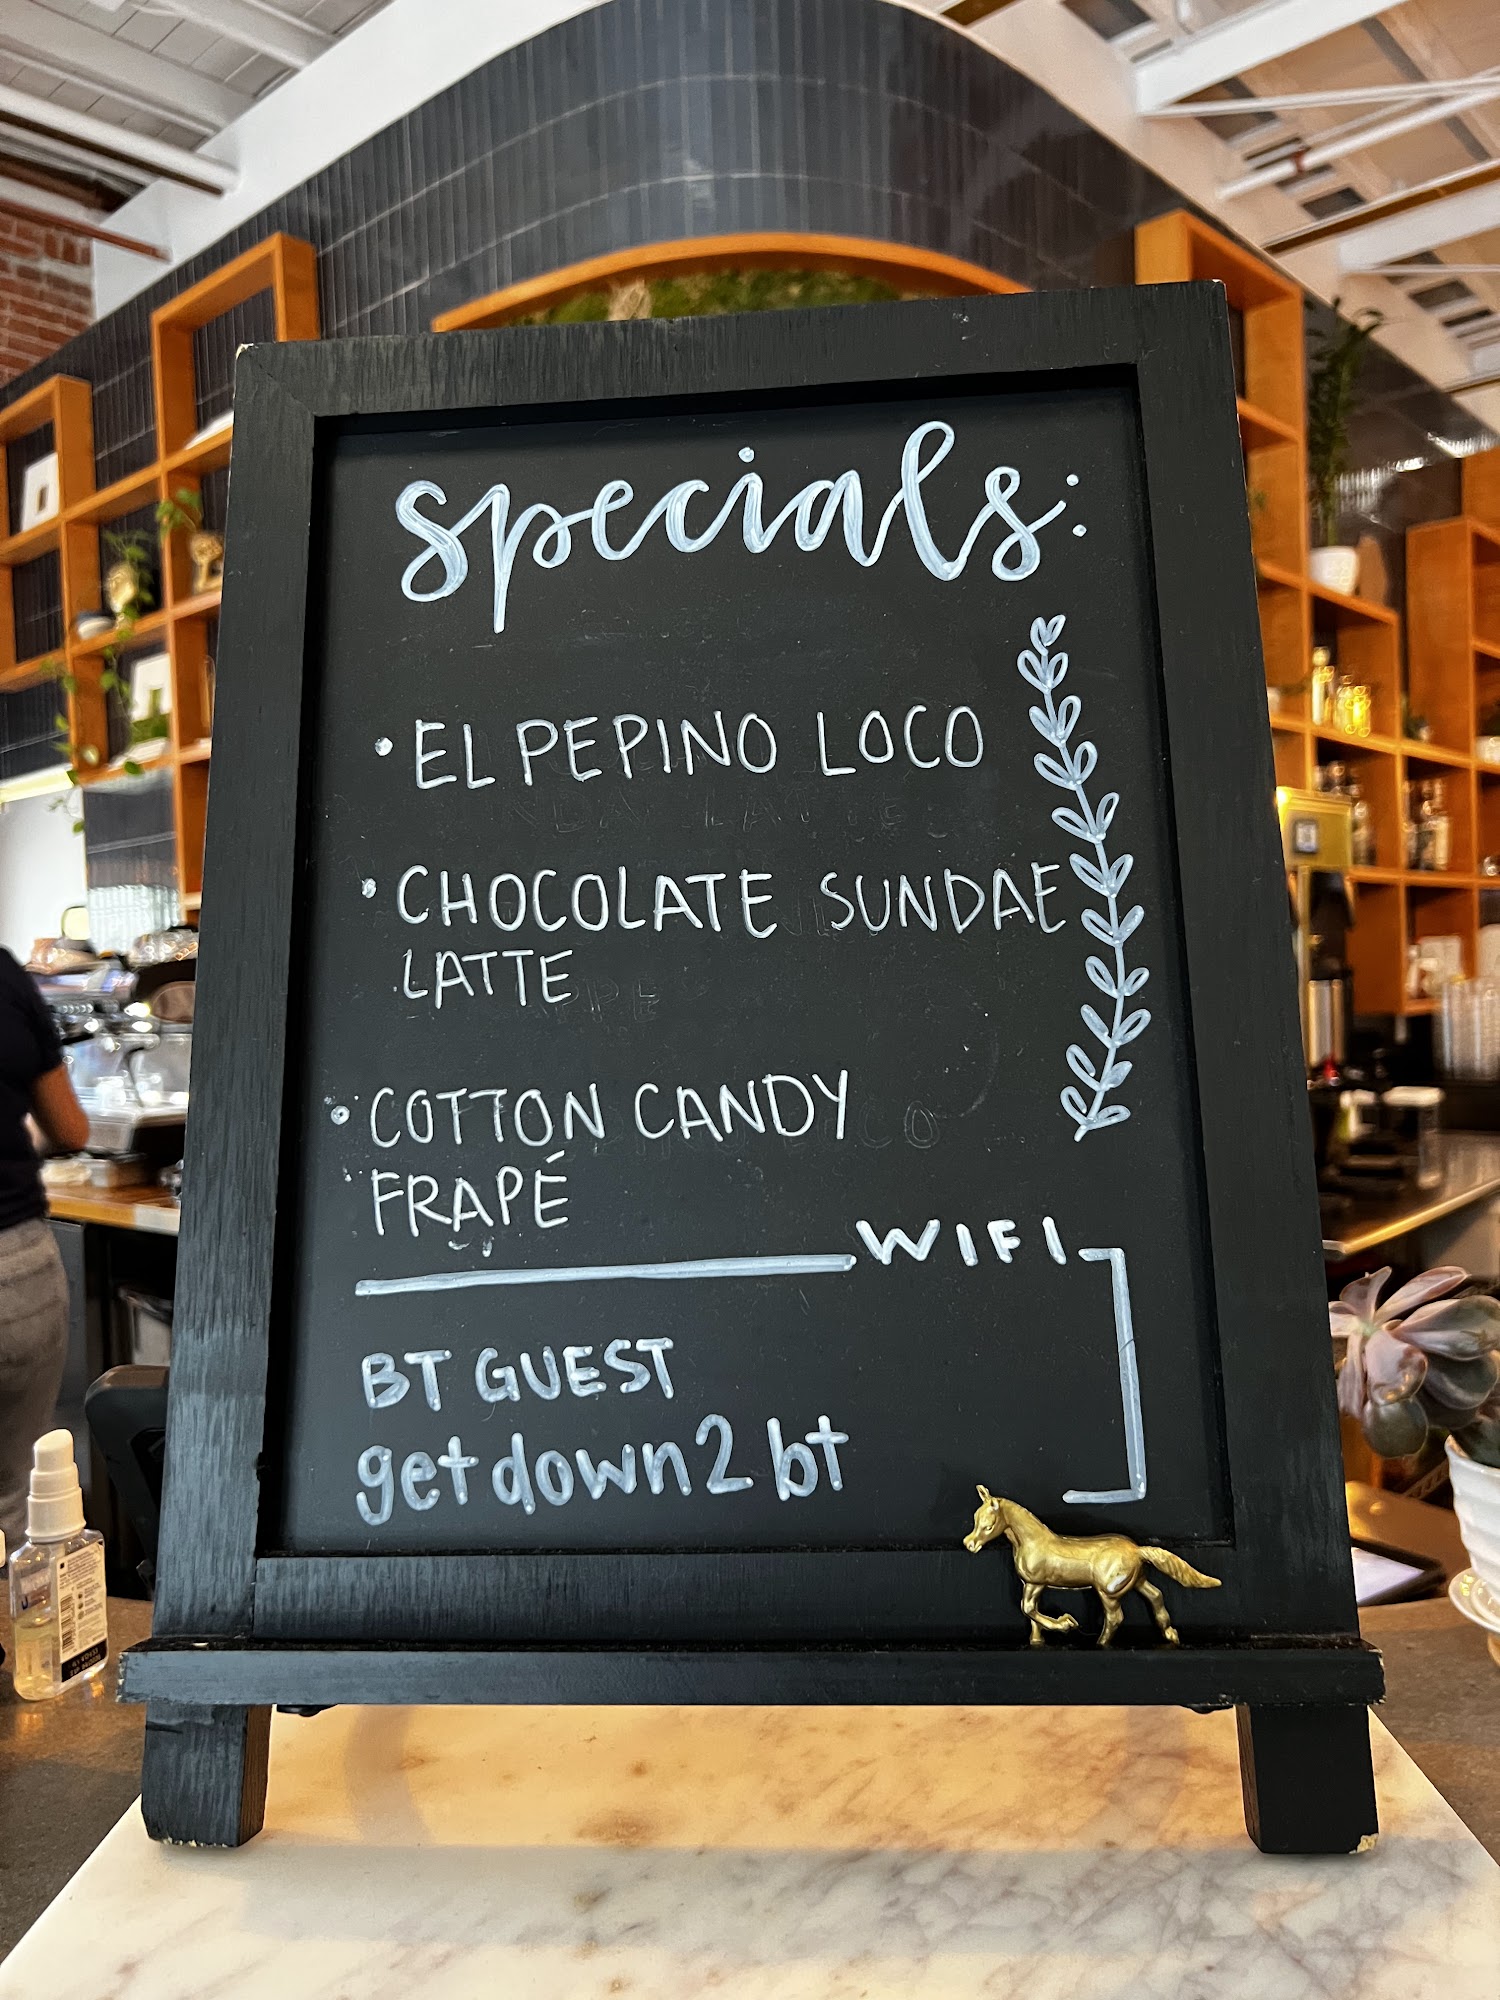 specials:
• EL PEPINO LOCO
• CHOCOLATE SUNDAE
LATTE
• COTTON CANDY
FRAPÉ
WIFI
BT GUEST
getdown2bt